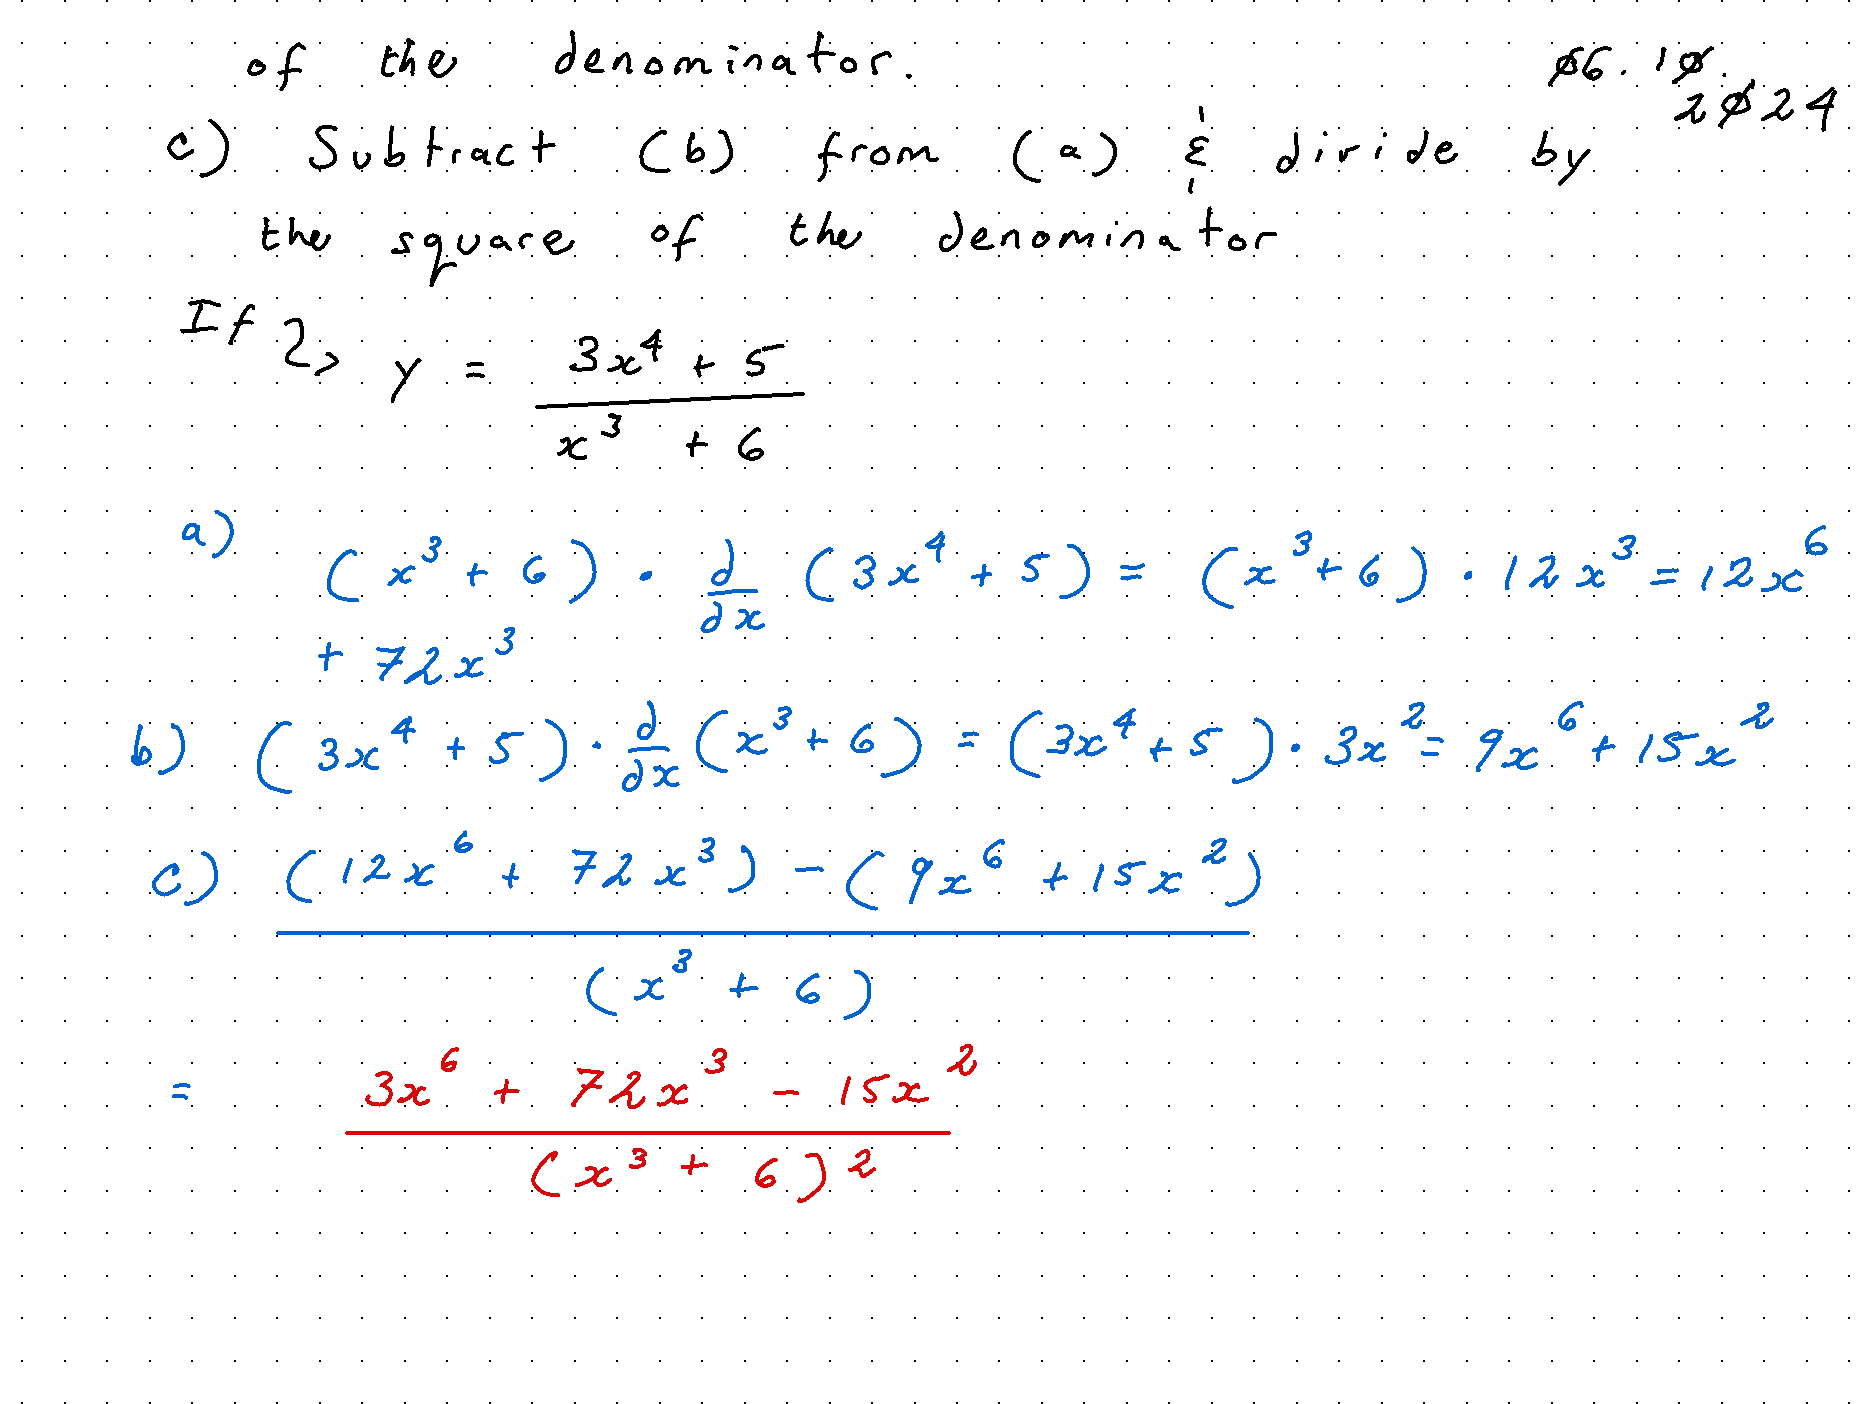 of the denominator.
06.10.
2024
c) Subtract (b) from (a) & divide by
the square of the denominator
If 2, y = (3x⁴ + 5) / (x³ + 6)
a) (x³ + 6) · d/dx (3x⁴ + 5) = (x³ + 6) · 12x³ = 12x⁶
+ 72x³
b) (3x⁴ + 5) · d/dx (x³ + 6) = (3x⁴ + 5) · 3x² = 9x⁶ + 15x²
c) (12x⁶ + 72x³) - (9x⁶ + 15x²)
(x³ + 6)
= 3x⁶ + 72x³ - 15x²
(x³ + 6)²